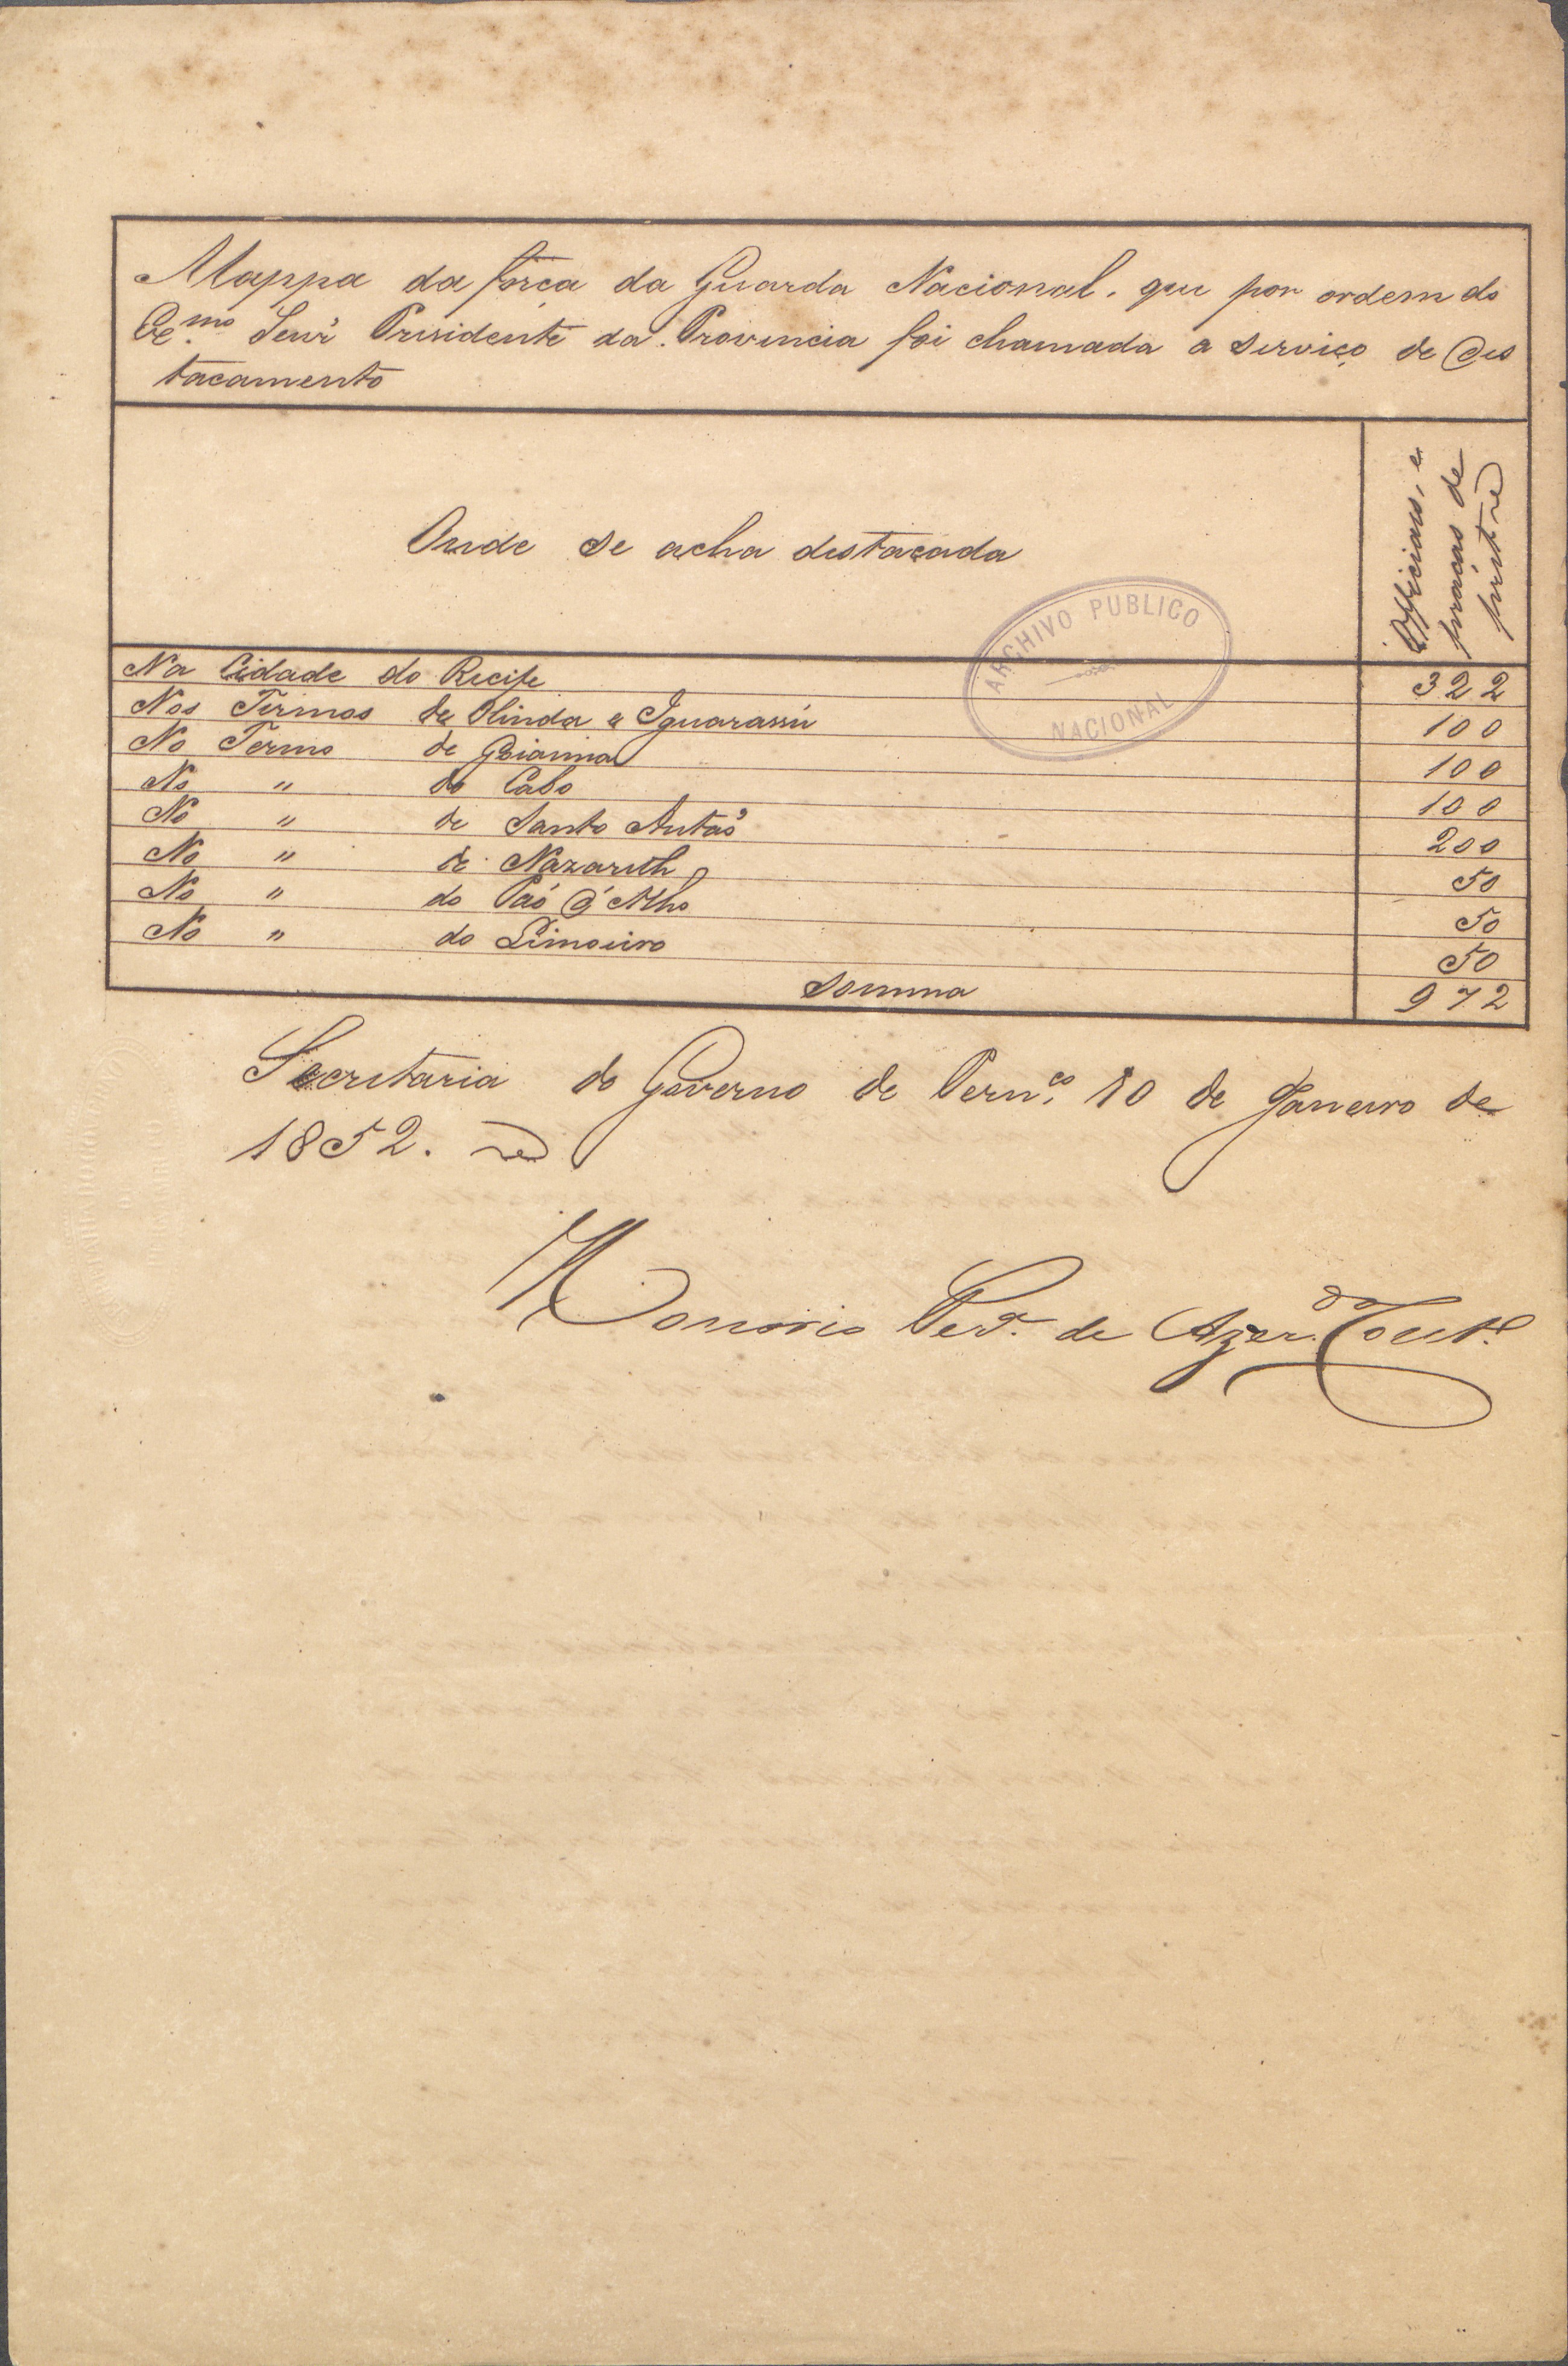 Mappa da força da Guarda Nacional, que por ordem do
Ex.mo Senr Presidente da Provincia foi chamada a serviço de des
tacamento
Onde se acha destacada
Officiais, e
praças de
pret
ARCHIVO PUBLICO
NACIONAL
Na Cidade do Recife 322
Nos Termos de Olinda e Iguarassú 100
No Termo de Goianna 100
No " do Cabo 100
No " de Santo Antaõ 200
No " de Nazareth 50
No " do Páo d'Alho 50
No " do Limoeiro 50
Somma 972
Secretaria do Governo de Pern.co 10 de Janeiro de
1852.
Honorio Per.ª de Azer.do Cout.º